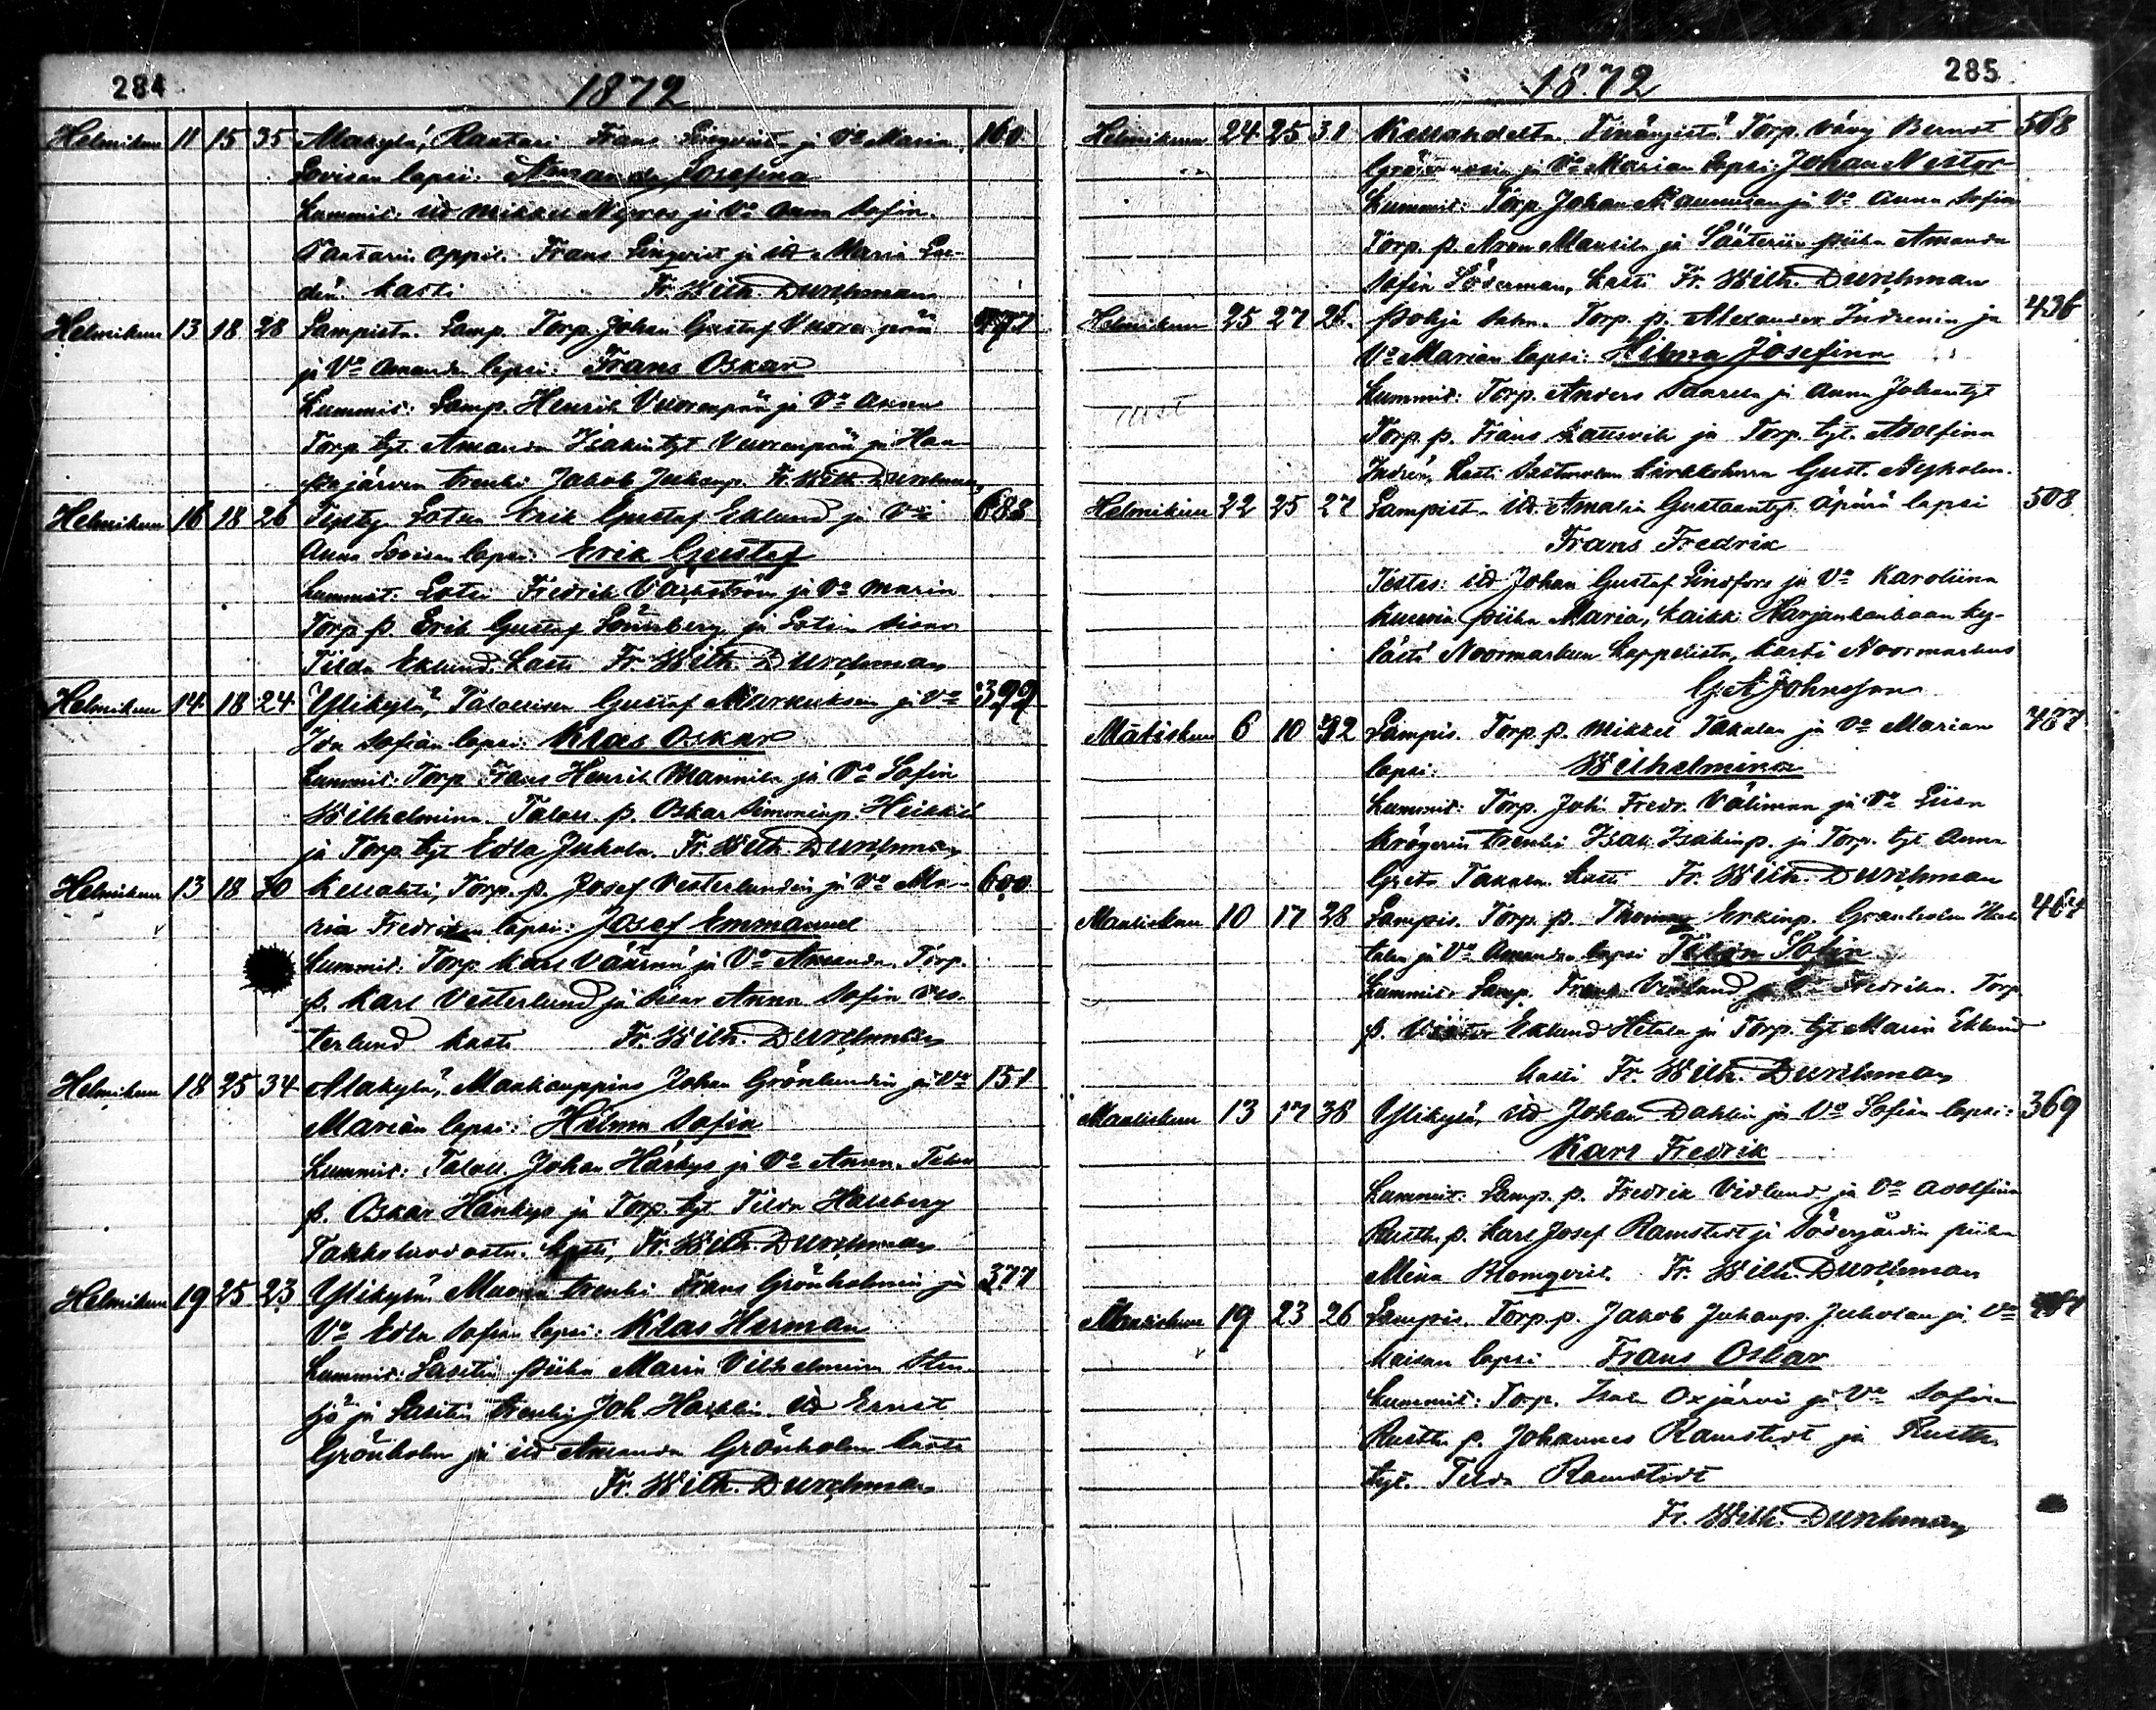 284
1872
Helmikuu 11 15 35 Makylä, Rautari Frans Linqvist ja Vo Maria 160
Lovisan lapsi: Amanda Josefina
Kummit: itd Mikkel Nyroos ja Vo Anna Sofia.
Rautarin oppil. Frans Linqvist ja itd Maria Lin-
dén. kasti Fr. Wilh. Durchman
Helmikuu 13 18 28 Lampista. Lamp. Torp. Johan Gustaf Vuorenpään
ja Vo Amandan lapsi: Frans Oskar
Kummit: Lamp. Henrik Vuorenpää ja Vo Anna
Torp. tyt. Amanda Isakintyt Vuorenpää ja Haa-
pajärven trenki Jakob Juhanp. Fr. Wilh. Durchman
Helmikuu 16 18 26 Lotsi Erik Gustaf Eklund ja Vo 688
Anna Lovisan lapsi: Erik Gustaf
Kummit: Lotsi Fredrik ja Vo Maria
Torp. p. Erik Gustaf Lönnberg ja Lotsin sisar
Tilda Eklund. kasti Fr. Wilh. Durchman
Helmikuu 14 18 24 Ylikylä, Talollisen Gustaf Markuksen ja Vo 399
Ida Sofian lapsi: Klas Oskar
Kummit: Torp. Frans Henrik Mannila ja Vo Sofia
Wilhelmina. Taloll. p. Oskar Simoninp. Heikkilä
ja Torp. tyt Edla Juhola. Fr. Wilh. Durchman
Helmikuu 13 18 30 Kellahti, Torp. p. Josef Vesterlundin ja Vo Ma- 600
ria Fredrikan lapsi: Josef Emmanuel
Kummit: Torp. Karl Väärnä ja Vo Amanda. Torp.
p. Karl Vesterlund ja sisar Anna Sofia Ves-
terlund kasti Fr. Wilh. Durchman
Helmikuu 18 25 34 Makylä, Maakauppias Johan Grönlundin ja Vo 151
Marian lapsi: Hilma Sofia
Kummit: Taloll. Johan Härkys ja Vo Anna. Talon
p. Oskar Hänkys ja Torp. tyt Tilda Hallberg
kasti, Fr. Wilh. Durchman
Helmikuu 19 25 23 Ylikylä trenki Frans Grönholmin ja 377
Vo Edla Sofian lapsi: Klas Herman
Kummit: Lasitin piika Maria Vilhelmina Sten-
sjö ja Lasitin trenki Joh. Itd Ernst
Grönholm ja itd Amanda Grönholm kasti
Fr. Wilh. Durchman
1872
285
Helmikuu 24 25 31 Kellahdelta. Torp. vävy Bernt 508
ja Vo Marian lapsi: Johan Nestor
Kummit: Torp. Johan Maunusan ja Vo Anna Sofia
Torp. p. Aron Mansila ja Säterin piika Amanda
Sofia Söderman, kasti Fr. Wilh. Durchman
Helmikuu 25 27 26 Pohja Torp. p. Alexander Indrenin ja 436
Vo Marian lapsi: Hilma Josefina
Kummit: Torp. Anders Saarela ja Anna Johantyt
Torp. p. Frans ja Torp. tyt. Adolfina
Indrén, kasti Gust. Nyholm.
Helmikuu 22 25 27 Lampist. itd. Amalia Gustaantyt. äpärä lapsi 508
Frans Fredrik
Testes: itd Johan Gustaf Lindfors ja Vo Karoliina
piika Maria, kaikki Harjankankaan ky-
lästä Noormarkun kappelista, kasti Noormarkus
G. A. Johnsson
Maliskuu 6 10 32 Lampis. Torp. p. Mikkel Takalan ja Vo Marian 487
lapsi: Wilhelmina
Kummit: Torp. Joh. Fredr. Välimaa ja Vo Liisa
Krögerin trenki Isak Isakinp. ja Torp. tyt Anna
Greta Takala kasti Fr. Wilh. Durchman
Maaliskuu 10 17 28 Lampis. Torp. p. Thomas Erkinp. Granholm 464
ja Vo Amandan lapsi Sofia
Kummit: Lamp. Frans Vidlund ja Vo Fredrika. Torp.
p. Eklund Hetala ja Torp. tyt Maria Eklund
kasti Fr. Wilh. Durchman
Maaliskuu 13 17 38 Ylikylä, itd Johan Dahlin ja Vo Sofian lapsi: 369
Karl Fredrik
Kummit: Lamp. p. Fredrik Vidlund ja Vo Adolfina
Rusth. p. Karl Josef Ramstedt ja Södergårdin piika
Mina Blomqvist. Fr. Wilh. Durchman
Maaliskuu 19 23 26 Lampis. Torp. p. Jakob Juhanp. Juholan ja Vo
Maisan lapsi Frans Oskar
Kummit: Torp. Isak Oxjärvi ja Vo Sofia
Rusth. p. Johannes Ramstedt ja Rusth.
tyt. Tilda Ramstedt
Fr. Wilh. Durchman